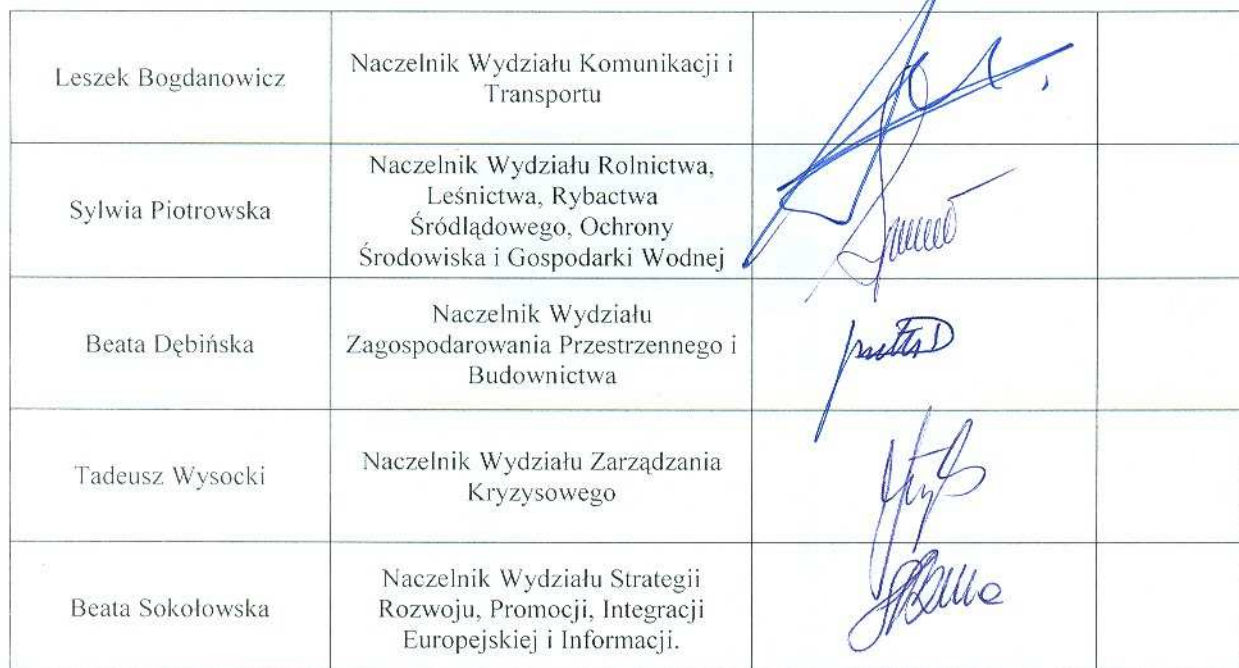 Leszek Bogdanowicz
Naczelnik Wydziału Komunikacji i
Transportu
Sylwia Piotrowska
Naczelnik Wydziału Rolnictwa,
Leśnictwa, Rybactwa
Śródlądowego, Ochrony
Środowiska i Gospodarki Wodnej
Beata Dębińska
Naczelnik Wydziału
Zagospodarowania Przestrzennego i
Budownictwa
Tadeusz Wysocki
Naczelnik Wydziału Zarządzania
Kryzysowego
Beata Sokołowska
Naczelnik Wydziału Strategii
Rozwoju, Promocji, Integracji
Europejskiej i Informacji.